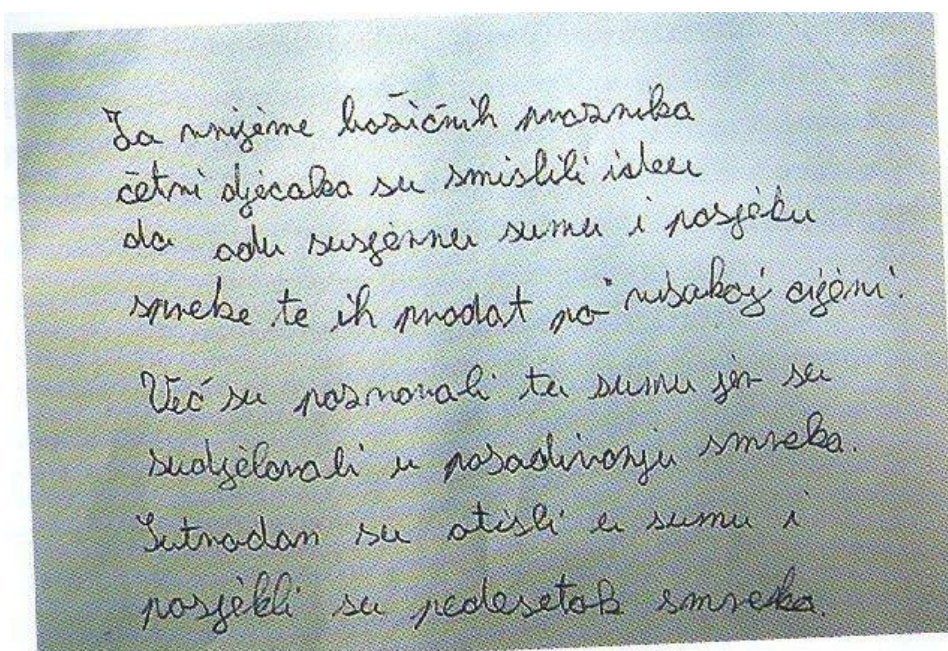 Za vrijeme božičnih praznika
četri dječaka su smislili ideu
da odu susjennu sumu i posjeku
smreke te ih prodat po visakoj cijeni.
Več su poznavali tu sumu jer su
sudjelovali u posadivanju smreka.
Sutradan su otisli u sumu i
posjekli su pedesetak smreka.